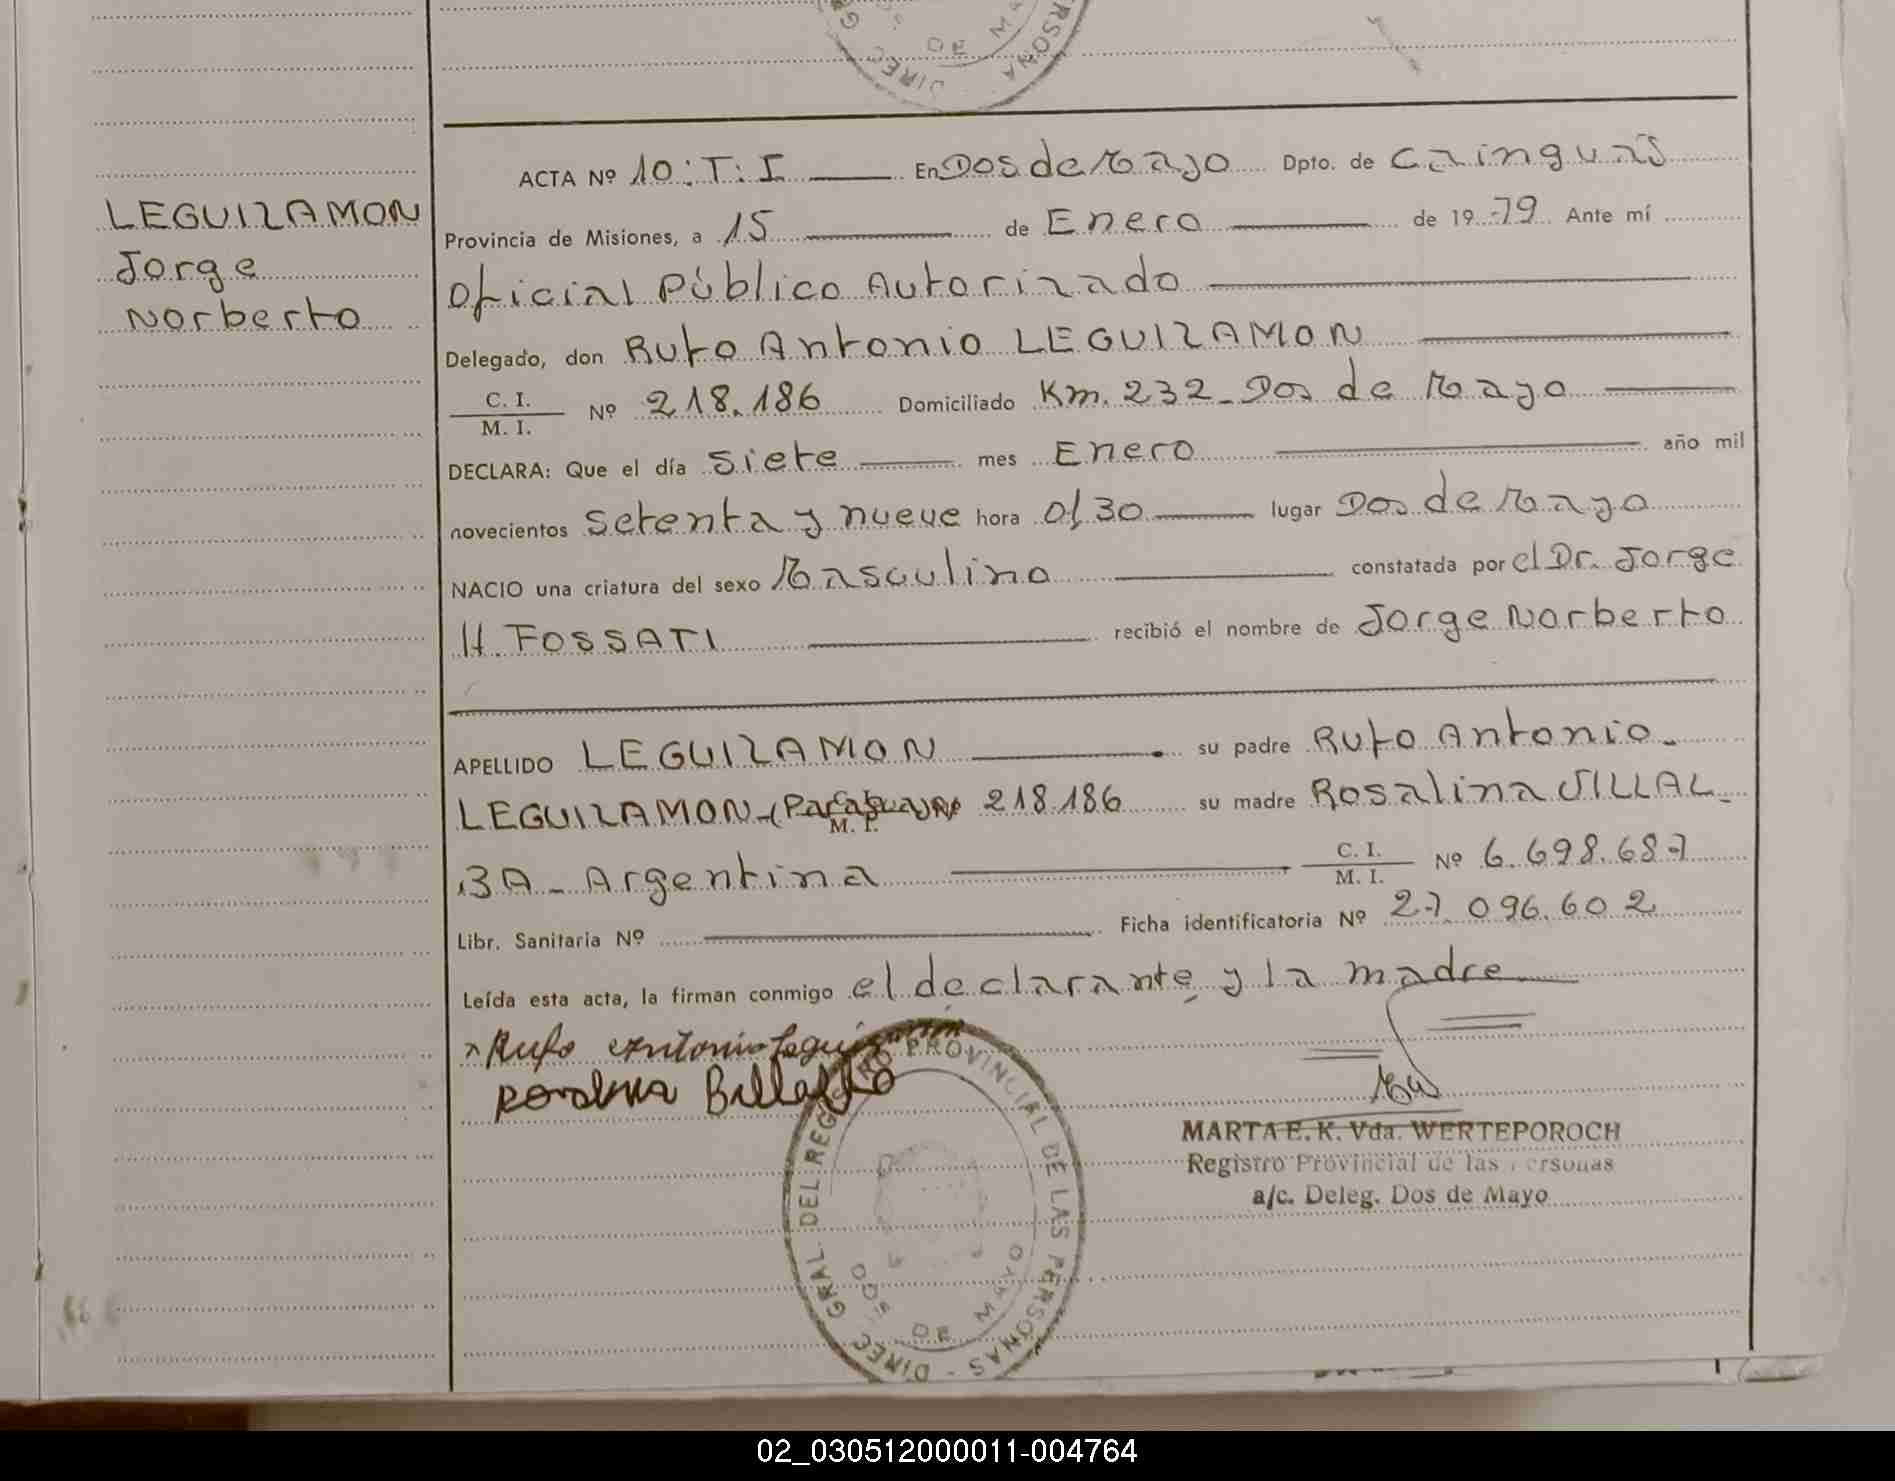 DIREC
GRAL
DOS DE MAYO
PERSONAS
LEGUIZAMON
Jorge
Norberto
ACTA Nº 10:T:I En Dos de Mayo Dpto. de Cainguás
Provincia de Misiones, a 15 de Enero de 19 79 Ante mí
Oficial Público Autorizado
Delegado, don Rufo Antonio LEGUIZAMON
C. I.
M. I. Nº 218.186 Domiciliado Km. 232_Dos de Mayo
DECLARA: Que el día siete mes Enero año mil
novecientos setenta y nueve hora 0/30 lugar Dos de Mayo
NACIO una criatura del sexo Masculino constatada por el Dr. Jorge
H. FOSSATI recibió el nombre de Jorge Norberto
APELLIDO LEGUIZAMON su padre Rufo Antonio_
LEGUIZAMON_(Paraguay) Nº 218.186 su madre Rosalina VILLAL_
M. I.
BA_Argentina C. I.
M. I. Nº 6.698.687
Libr. Sanitaria Nº Ficha identificatoria Nº 27.096.602
Leída esta acta, la firman conmigo el declarante y la madre
Rufo Antonio Leguizamón
DIREC. GRAL. DEL REGISTRO PROVINCIAL DE LAS PERSONAS -
DOS DE MAYO
MARTA E. K. Vda. WERTEPOROCH
Registro Provincial de las Personas
a/c. Deleg. Dos de Mayo
02_030512000011-004764